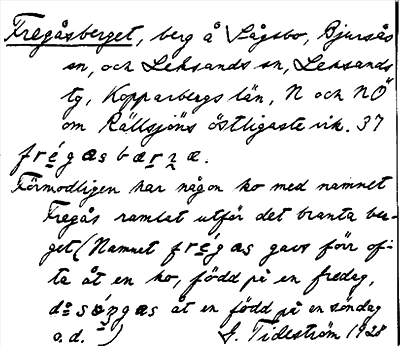 Fregåsberget, berg å Sågsbo, Bjursås
sn, och Leksands sn, Leksands
tg, Kopparbergs län, N och NÖ
om Rällsjöns östligaste vik. 37
frégasbærʒæ.
Förmodligen har någon ko med namnet
Fregås ramlat utför det branta ber-
get (Namnet frégas gavs förr of-
ta åt en ko, född på en fredag,
åt en född på en söndag
o.d. ) G. Tideström 1928